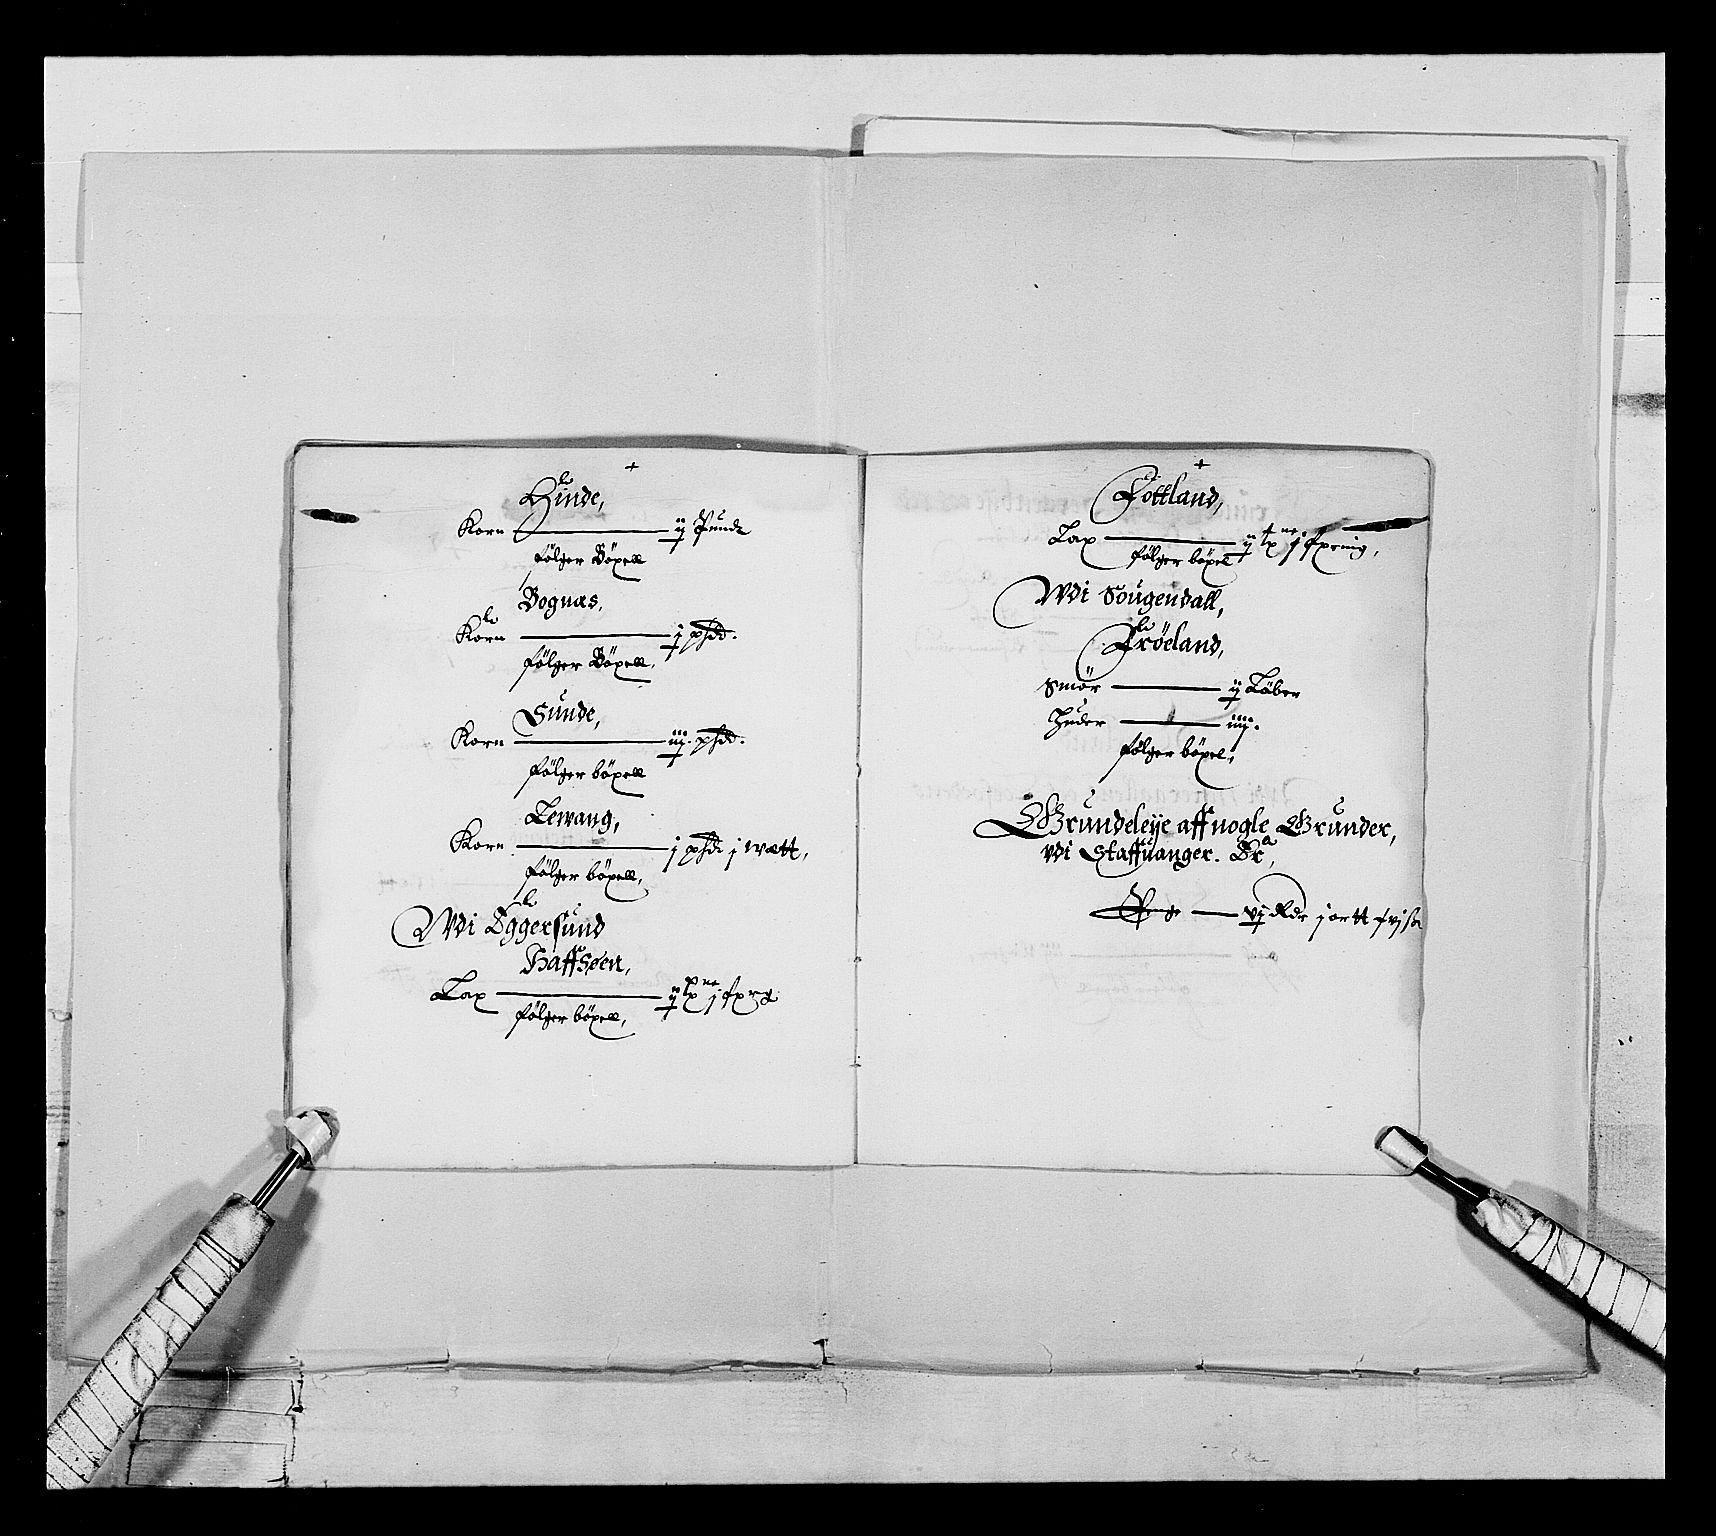 +
Hinde,
Korn — ij Pundt
følger Böxell
Bognæs,
Korn — j phdt.
følger Böxell,
Sunde,
Korn — iij phdt.
følger böxell
Lewang,
Korn — j phdt j wætt,
følger böxell,
Wdi Eggersund
Haffsøen,
Lax — ij
følger böxell,
+
Fottland,
Lax — ij
følger böxel
Wdi Sougendall,
Frøeland,
Smör — ij Løber
Huder — iiij.
følger böxel,
Grundeleije aff nogle Grunder,
vdi Staffuanger.
Penge — vj Rdr j ortt